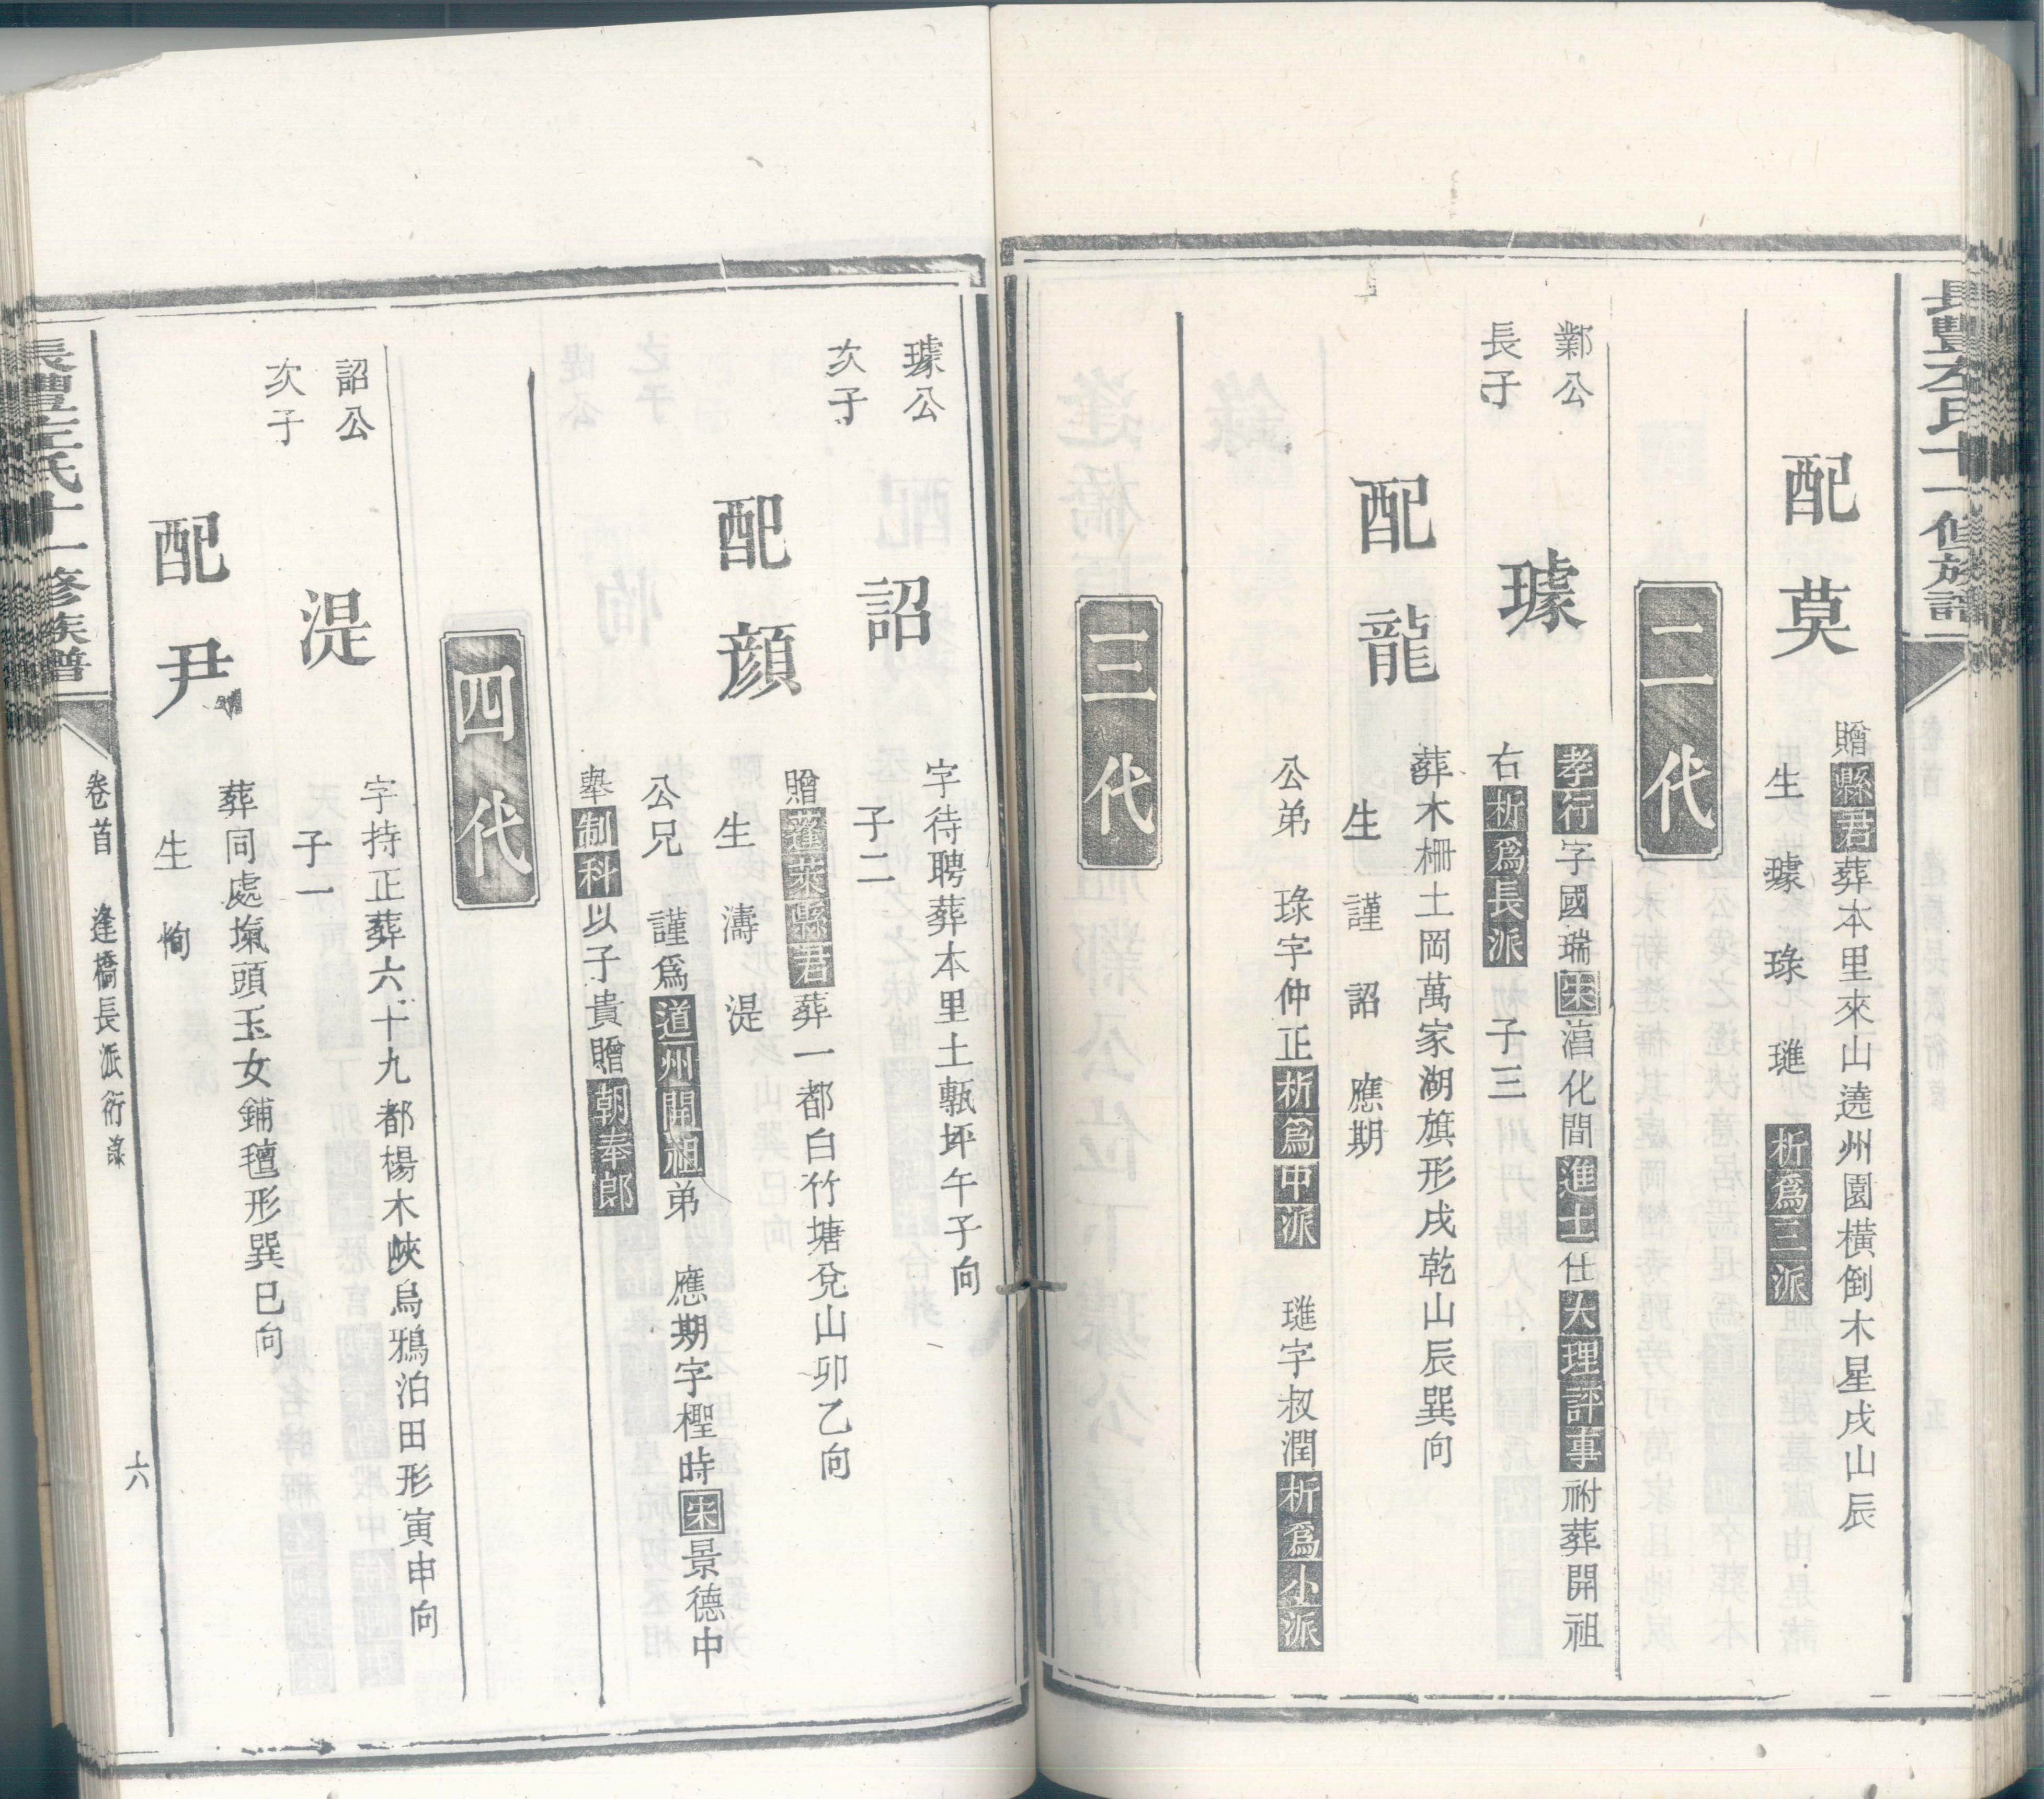 長豐左氏十一修族譜
配莫
贈縣君葬本里來山澆州園橫倒木星戌山辰
生 璩 琭 璡 析爲三派
二代
鄴公
長子
璩
孝行字國瑞宋淯化間進士仕大理評事祔葬開祖
右析爲長派 子三
配龍
葬木柵土岡萬家湖旗形戌乾山辰巽向
生 謹 詔 應期
公弟 琭字仲正析爲中派 璡字叔潤析爲小派
三代
璩公
次子
詔
字待聘葬本里土甎坪午子向
子二
配顏
贈蓬萊縣君葬一都白竹塘兌山卯乙向
生 濤 湜
公兄 謹爲道州開祖弟 應期字檉時宋景德中
舉制科以子貴贈朝奉郎
四代
詔公
次子
湜
字持正葬六十九都楊木峽烏鴉泊田形寅申向
子一
配尹
葬同處塸頭玉女鋪氊形巽巳向
生 恂
長豐左氏十一修族譜
卷首 逢橋長派衍錄
六